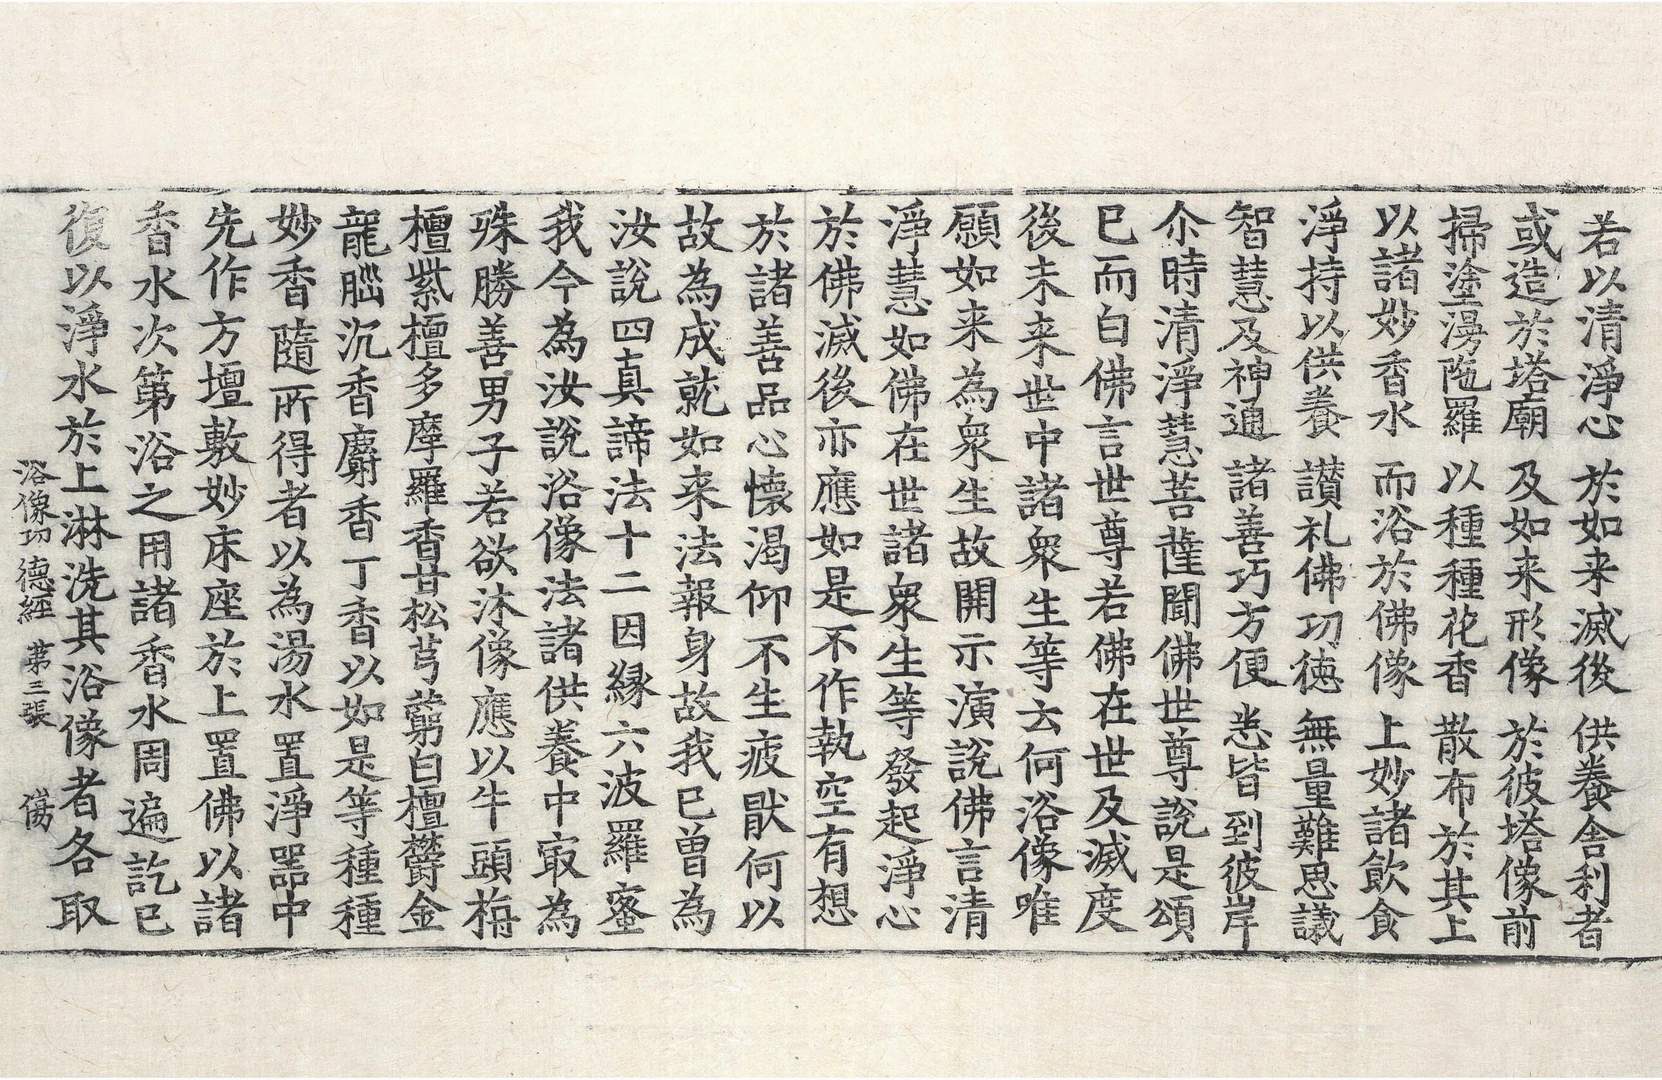 若以清淨心　於如来滅後　供養舎利者
或造於塔廟　及如来形像　於彼塔像前
掃塗湯陁羅　以種種花香　散布於其上
以諸妙香水　而浴於佛像　上妙諸飲食
淨持以供養　讃礼佛功徳　無量難思議
智慧及神通　諸善巧方便　悉皆到彼岸
尒時清淨慧菩薩聞佛世尊說是頌
已而白佛言世尊若佛在世及滅度
後未来世中諸衆生等云何浴像唯
願如来為衆生故開示演說佛言清
淨慧如佛在世諸衆生等發起淨心
於佛滅後亦應如是不作執空有想
於諸善品心懷渴仰不生疲猒何以
故為成就如来法報身故我已曾為
汝說四真諦法十二因縁六波羅蜜
我今為汝說浴像法諸供養中㝡為
殊勝善男子若欲沐像應以牛頭栴
檀紫檀多摩羅香甘松芎藭白檀欝金
龍腦沉香麝香丁香以如是等種種
妙香隨所得者以為湯水置淨器中
先作方壇敷妙床座於上置佛以諸
香水次第浴之用諸香水周遍訖已
復以淨水於上淋洗其浴像者各取
浴像功德經　第三張